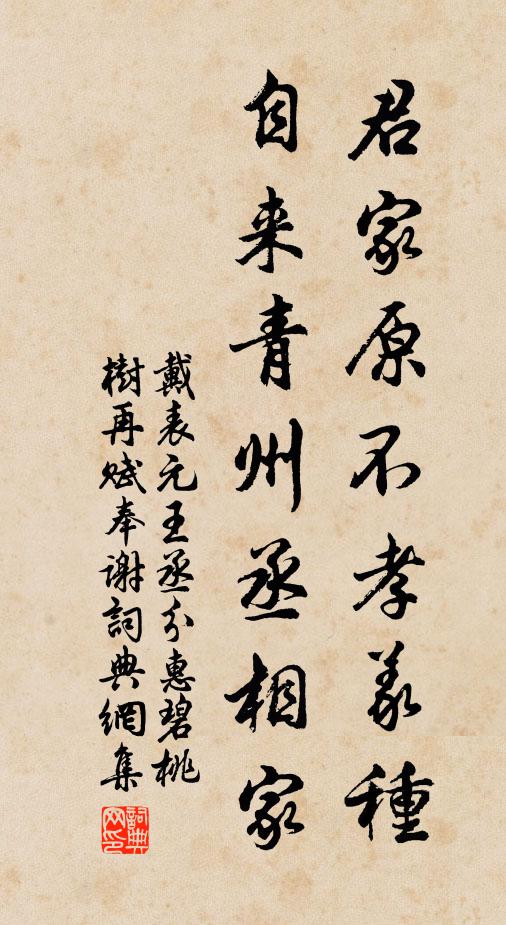 君家原不孝義種
自来青州丞相家
戴表元王丞分惠碧桃
樹再赋奉谢詞典網集
詞典网印